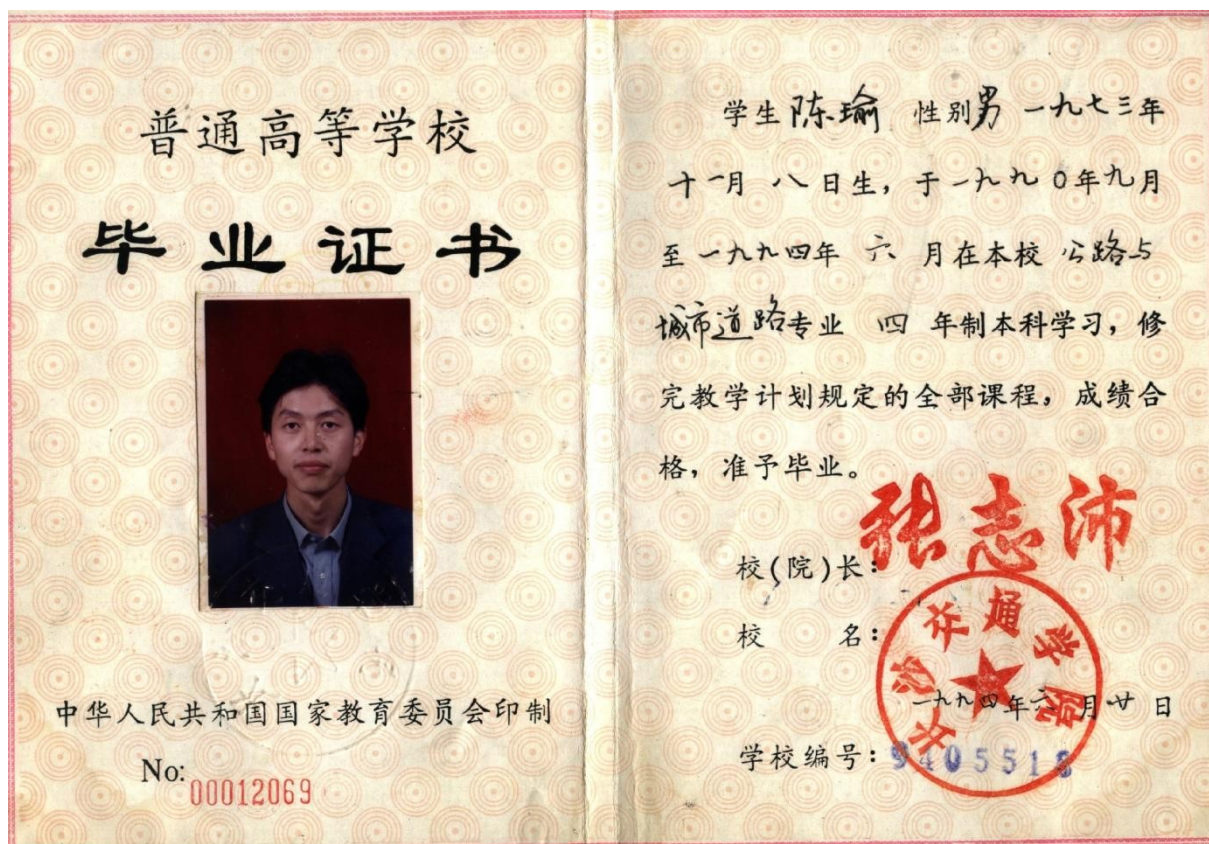 普通高等学校
毕业证书
中华人民共和国国家教育委员会印制
No: 00012069
学生 陈瑜 性别 男 一九七三年
十一月 八 日生，于一九九0年九月
至一九九四年 六 月在本校 公路与
城市道路专业 四 年制本科学习，修
完教学计划规定的全部课程，成绩合
格，准予毕业。
校(院)长：张志沛
校 名：
长沙交通学院
一九九四年六月廿日
学校编号：9405518